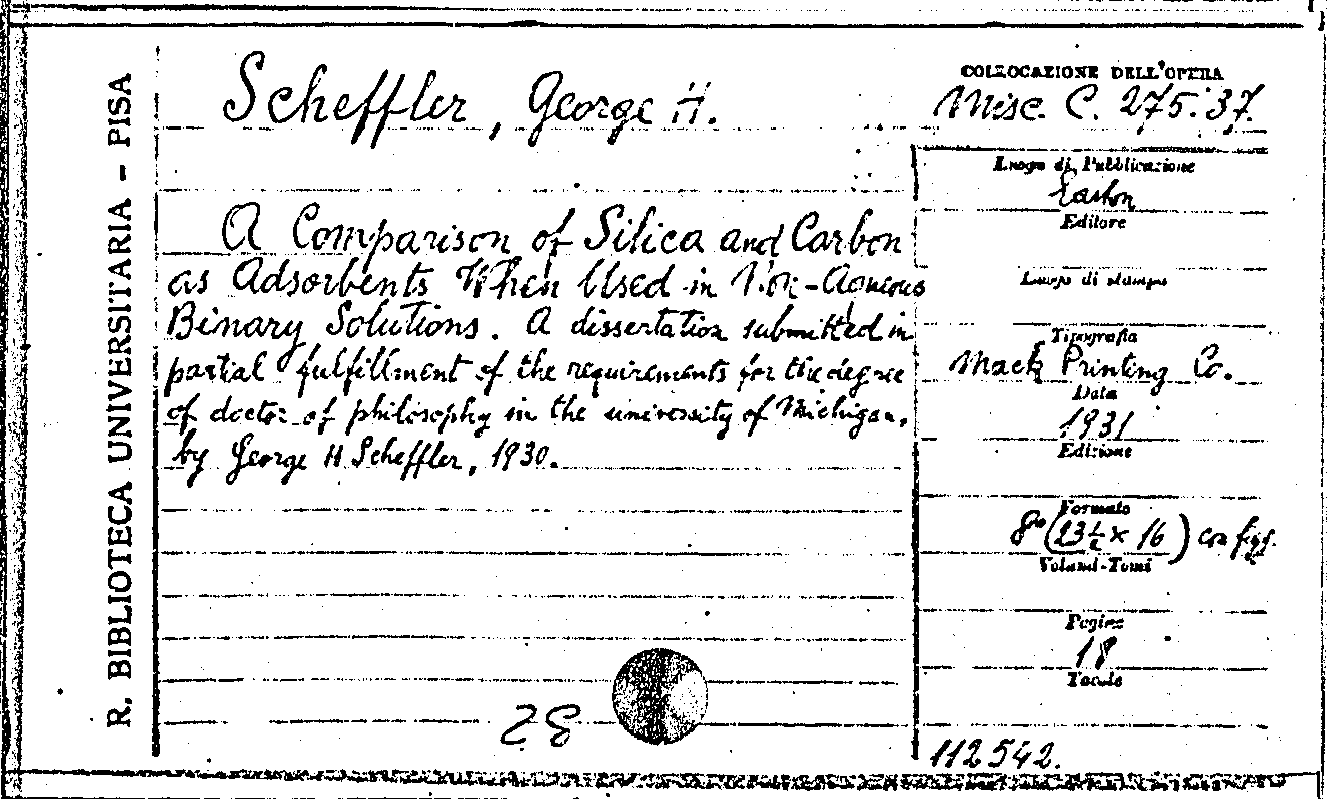 R. BIBLIOTECA UNIVERSITARIA - PISA
Scheffler, George H.
A Comparison of Silica and Carbon
as Adsorbents When Used in Non-Aqueous
Binary Solutions. A dissertation submitted in
partial fulfillment of the requirements for the degree
of doctor of philosophy in the university of Michigan,
by George H Scheffler, 1930.
COLLOCAZIONE DELL'OPERA
Misc. C. 275.37.
Luogo di Pubblicazione
Easton
Editore
Luogo di stampa
Tipografia
Mack Printing Co.
Data
1931
Edizione
Formato
8° (23½ × 16) con figg.
Volumi-Tomi
Pagine
18
Tavole
112542.